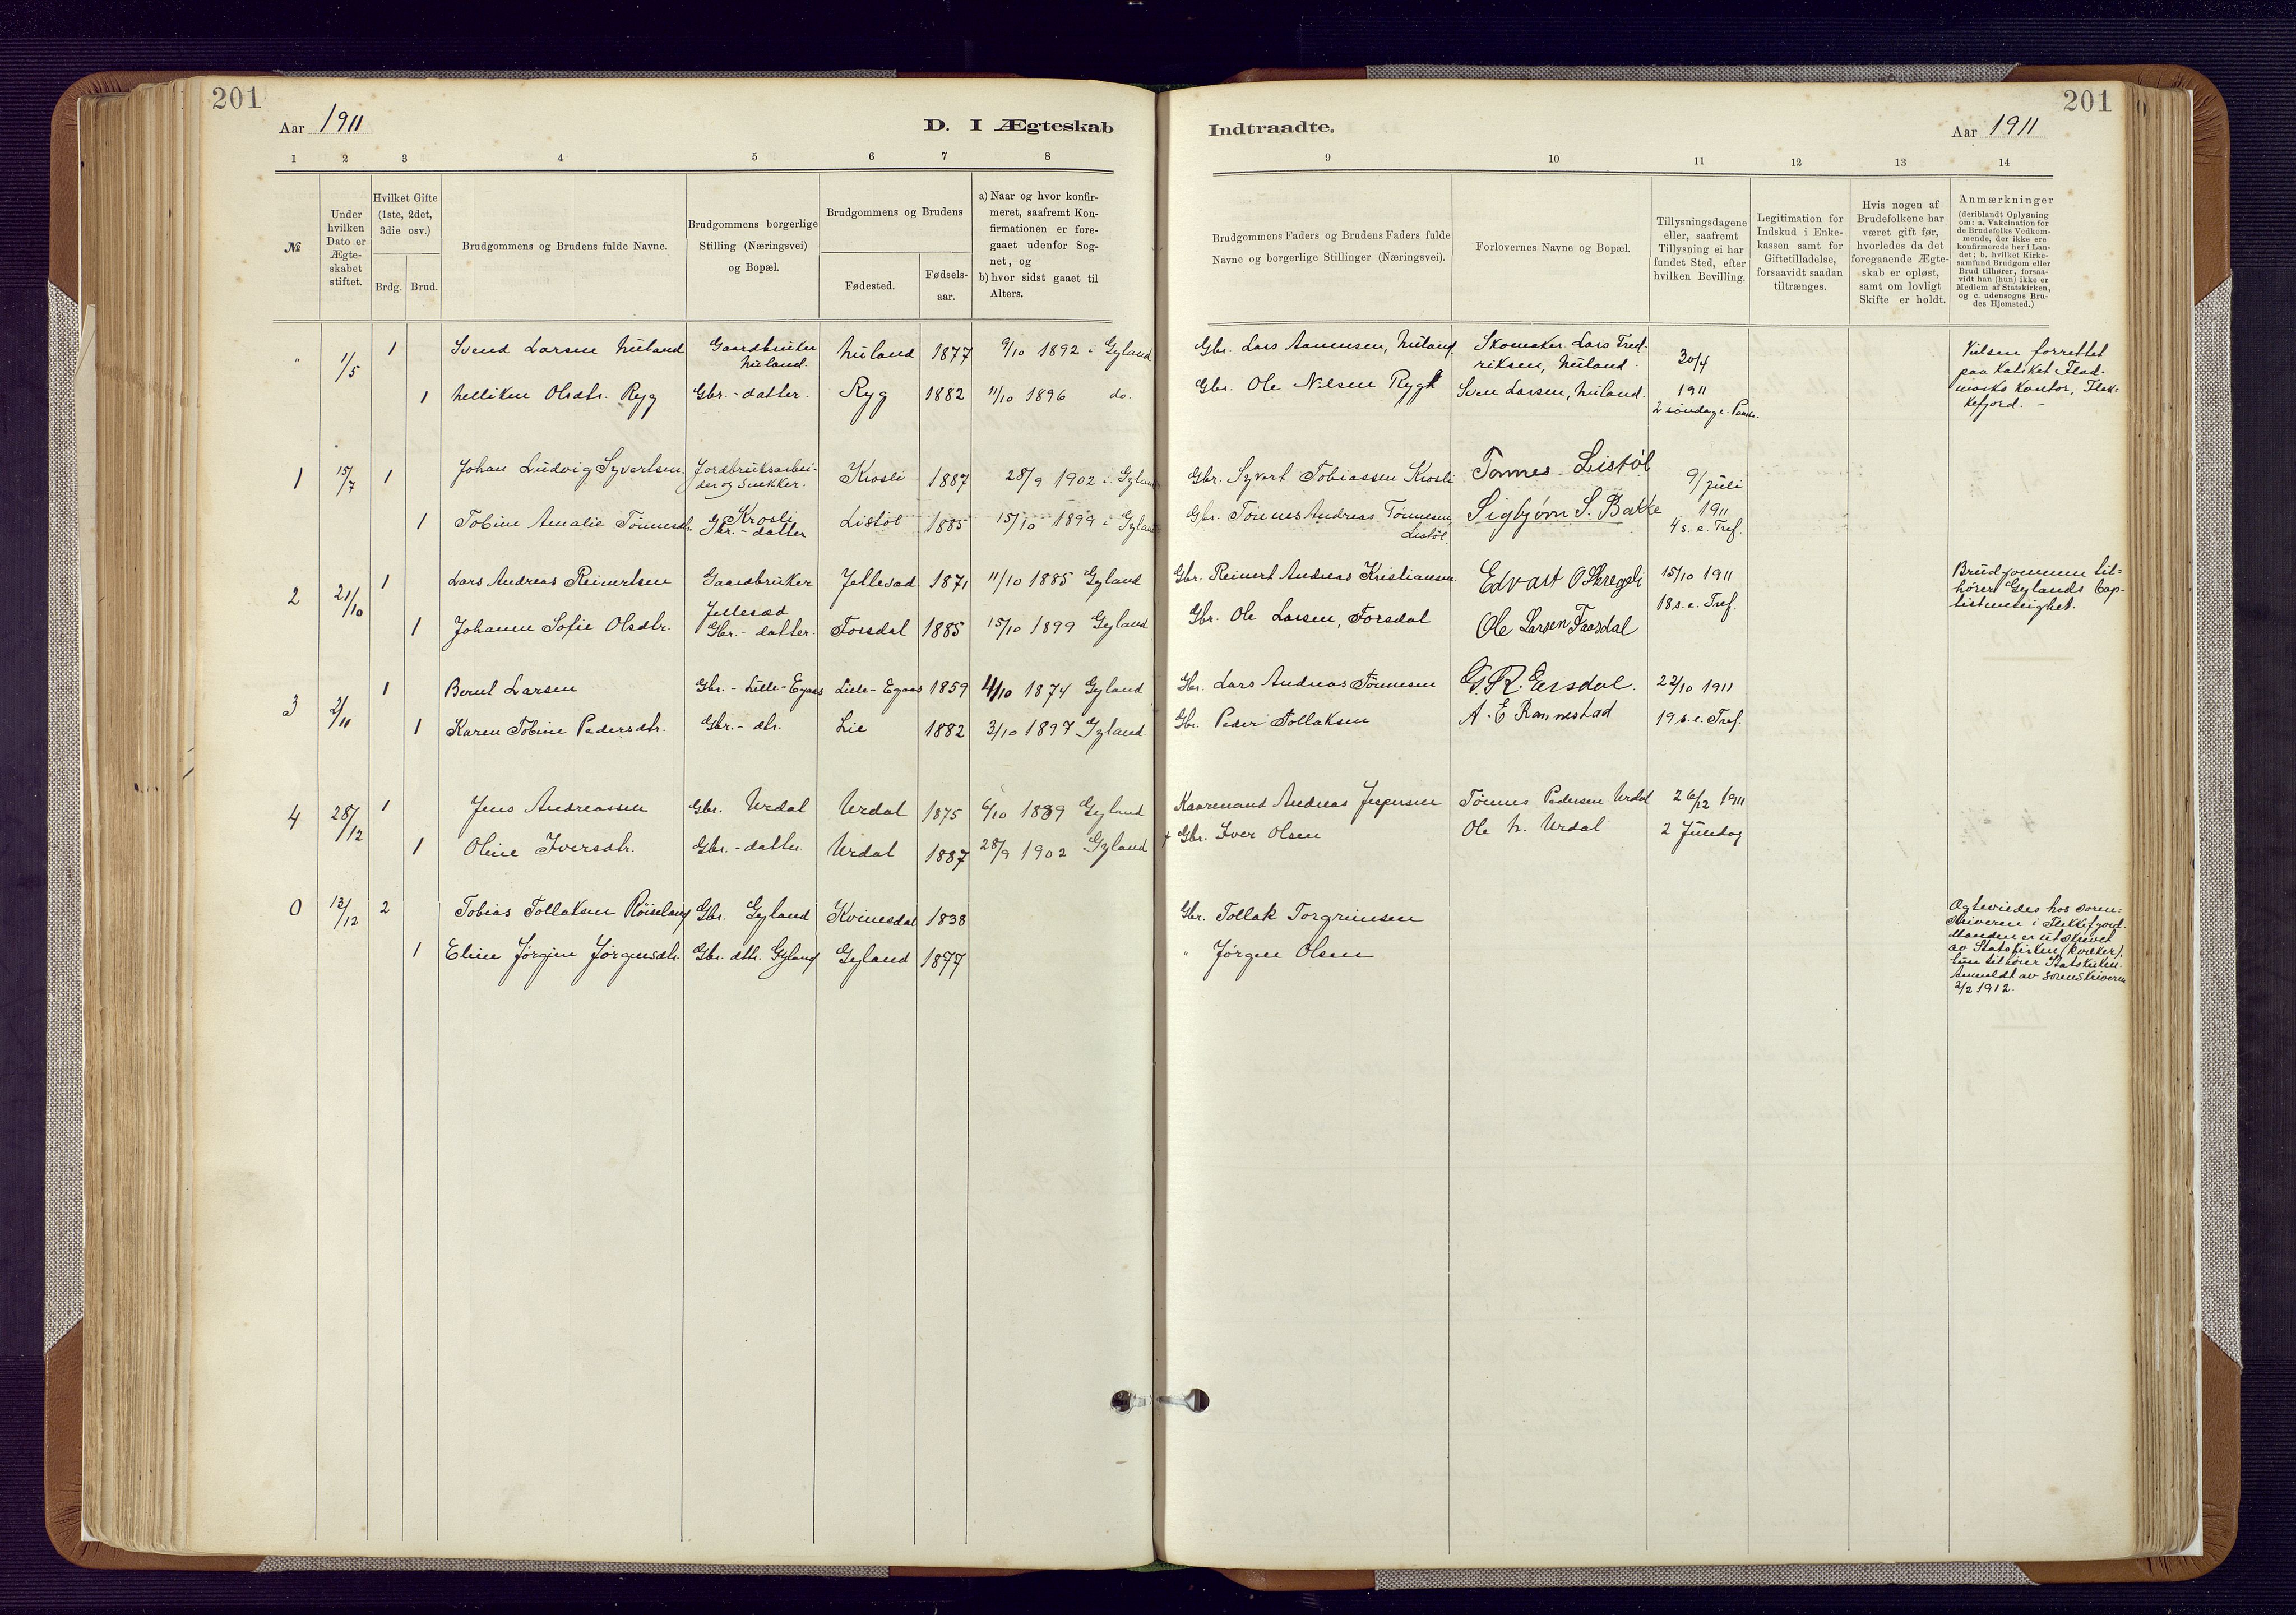 201
Aar 1911
D. I Ægteskab
1 2 3 4 5 6 7 8
№
Under hvilken Dato er Ægteskabet stiftet.
Hvilket Gifte (1ste, 2det, 3die osv.)
Brdg. Brud.
Brudgommens og Brudens fulde Navne.
Brudgommens borgerlige Stilling (Næringsvei) og Bopæl.
Brudgommens og Brudens
Fødested.
Fødsels-aar.
a) Naar og hvor konfir-
meret, saafremt Kon-
firmationen er fore-
gaaet udenfor Sog-
net, og
b) hvor sidst gaaet til
Alters.
" 1/5 1 Svend Larsen Nuland Gaardbruker Nuland. Nuland 1877 9/10 1892 i Gyland
1 Helliken Olsdtr. Ryg Gbr.-datter. Ryg 1882 11/10 1896 do.
1 15/7 1 Johan Ludvig Syvertsen Jordbruksarbei-
der og Snekker. Krosli Krosli 1887 28/9 1902 i Gyland
1 Tobine Amalie Tønnesdtr. Gbr.-datter Listøl 1885 15/10 1899 i Gyland
2 21/10 1 Lars Andreas Reinertsen Gaardbruker Jellesad Jellesad 1871 11/10 1885 Gyland
1 Johanne Sofie Olsdtr. Gbr.-datter. Forsdal 1885 15/10 1899 Gyland
3 2/11 1 Bernt Larsen Gbr.-Lille-Egaas Lille-Egaas 1859 4/10 1874 Gyland
1 Karen Tobine Pedersdtr. Gbr.-dtr. Lie 1882 3/10 1897 Gyland.
4 28/12 1 Jens Andreassen Gbr. Urdal Urdal 1875 6/10 1889 Gyland
1 Oline Iversdtr. Gbr.-datter Urdal 1887 28/9 1902 Gyland
0 13/12 2 Tobias Tollaksen Røiseland Gbr. Gyland Kvinesdal 1838
1 Eline Jørgine Jørgensdtr. Gbr. dtr. Gyland Gyland 1877
201
Indtraadte.
Aar 1911
9 10 11 12 13 14
Brudgommens Faders og Brudens Faders fulde
Navne og borgerlige Stillinger (Næringsvei).
Forlovernes Navne og Bopæl.
Tillysningsdagene
eller, saafremt
Tillysning ei har
fundet Sted, efter
hvilken Bevilling.
Legitimation for
Indskud i Enke-
kassen samt for
Giftetilladelse,
forsaavidt saadan
tiltrænges.
Hvis nogen af
Brudefolkene har
været gift før,
hvorledes da det
foregaaende Ægte-
skab er opløst,
samt om lovligt
Skifte er holdt.
Anmærkninger
(deriblandt Oplysning
om: a. Vakcination for
de Brudefolks Vedkom-
mende, der ikke ere
konfirmerede her i Lan-
det; b. hvilket Kirke-
samfund Brudgom eller
Brud tilhører, forsaa-
vidt han (hun) ikke er
Medlem af Statskirken,
og c. udensogns Bru-
des Hjemsted.)
Gbr. Lars Aanensen, Nuland Skomaker Lars Fred-
riksen, Nuland. 30/4
Gbr. Ole Nilsen Ryg Sven Larsen, Nuland. 1911
2 søndag e. Paaske.
Vielsen forrettet
paa
Kontor, Flek-
kefjord.
Gbr. Syvert Tobiassen Krosli Tønnes Listøl 9/juli
Gbr. Tønnes Andreas Tønnesen, Listøl. Sigbjørn S. Bakke 1911
4 s. e. Tref.
Gbr. Reinert Andreas Kristiansen Edvart O Skregeli 15/10 1911
Gbr. Ole Larsen, Forsdal Ole Larsen Faasdal 18 s. e. Tref.
Brudgommen til-
hører Gylands Bap-
tistmenighet.
Gbr. Lars Andreas Tønnesen G. R. Eiesdal. 22/10 1911
Gbr. Peder Tollaksen A. E Rannestad 19 s. e. Tref.
Kaaremand Andreas Jespersen Tønnes Pedersen Urdal 26/12 1911
+ Gbr. Iver Olsen Ole N. Urdal 2 Juledag
Gbr. Tollak Torgrimsen
" Jørgen Olsen
Ægteviedes hos soren-
skriveren i Flekkefjord.
Manden er utskrevet
av Statskirken (kvæker),
hun tilhører Statskirken.
Anmeldt av sorenskriveren
2/2 1912.